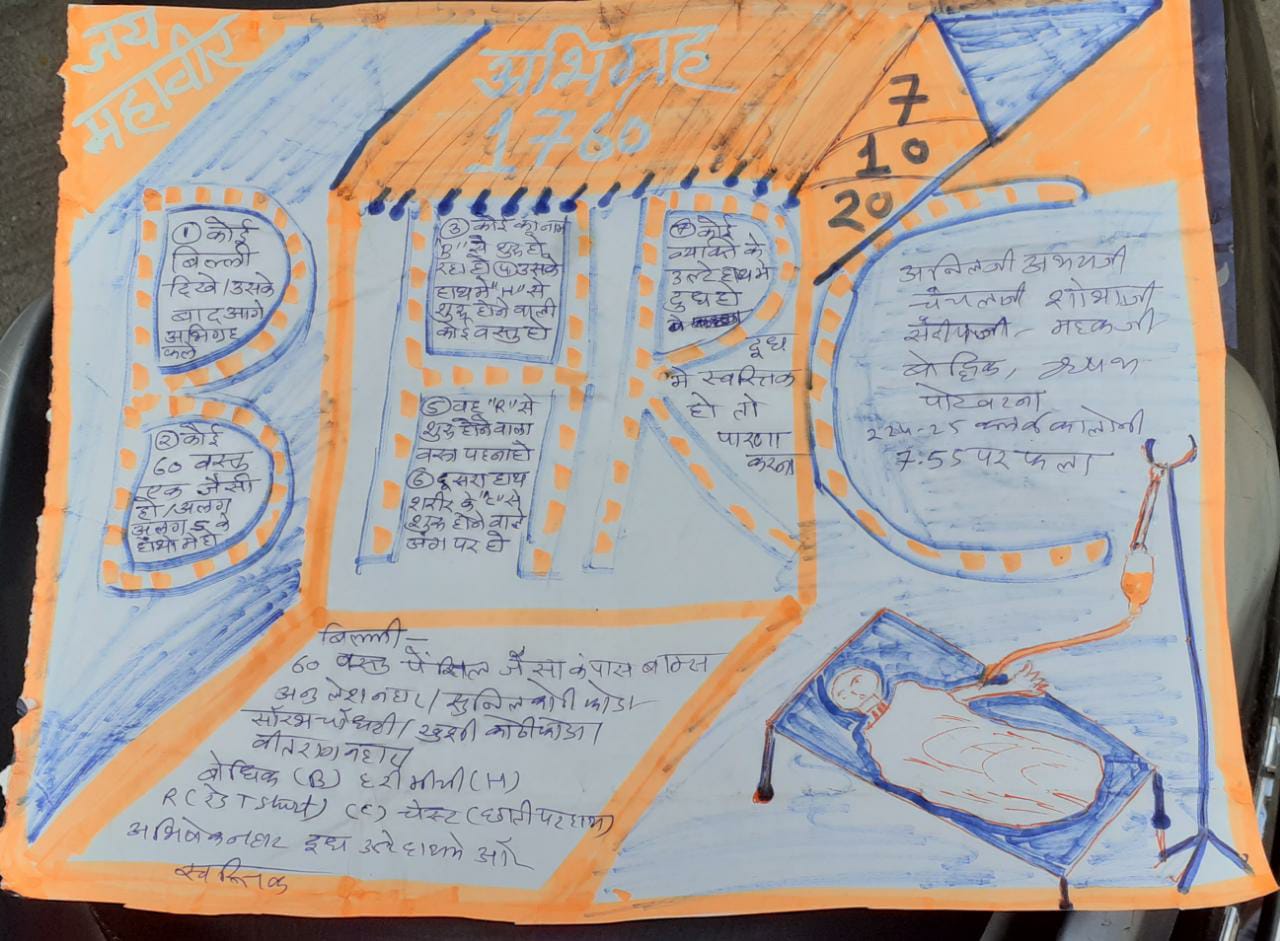 जय
महावीर
अभिग्रह
1760
7
10
20
① कोई
बिल्ली
दिखे/उसके
बाद आगे
अभिग्रह
फले
② कोई
60 वस्तु
एक जैसी
हो/अलग
अलग 5 के
हाथो मे हो
③ कोई का नाम
से शुरू हो
रहा हो ④ उसके
हाथ मे "H" से
शुरू होने वाली
कोई वस्तु हो
⑤ वह "R" से
शुरू होने वाला
वस्त्र पहना हो
⑥ दूसरा हाथ
शरीर के "C" से
शुरू होने वाले
अंग पर हो
कोई
व्यक्ति के
उल्टे हाथ मे
दुध हो
दूध
मे स्वस्तिक
हो तो
पारणा
करना
अनिलजी अभयजी
चंचलजी शोभाजी
महकजी
बोधिक,
पोरवरना
क्लर्क कालोनी
7.55 पर फला
बिल्ली-
60 वस्तु पेंसिल जैसा कंपास बाक्स
नहार / सुनिल कोठीफोडा
सौरभ चौधरी / खुशी कोठीफोडा /
वीतराग नहार
बोधिक (B) हरी मीर्ची (H)
R (रेड T Shirt) (C) चेस्ट (छाती पर हाथ)
अभिषेक नहार दूध उल्टे हाथ मे और
स्वस्तिक